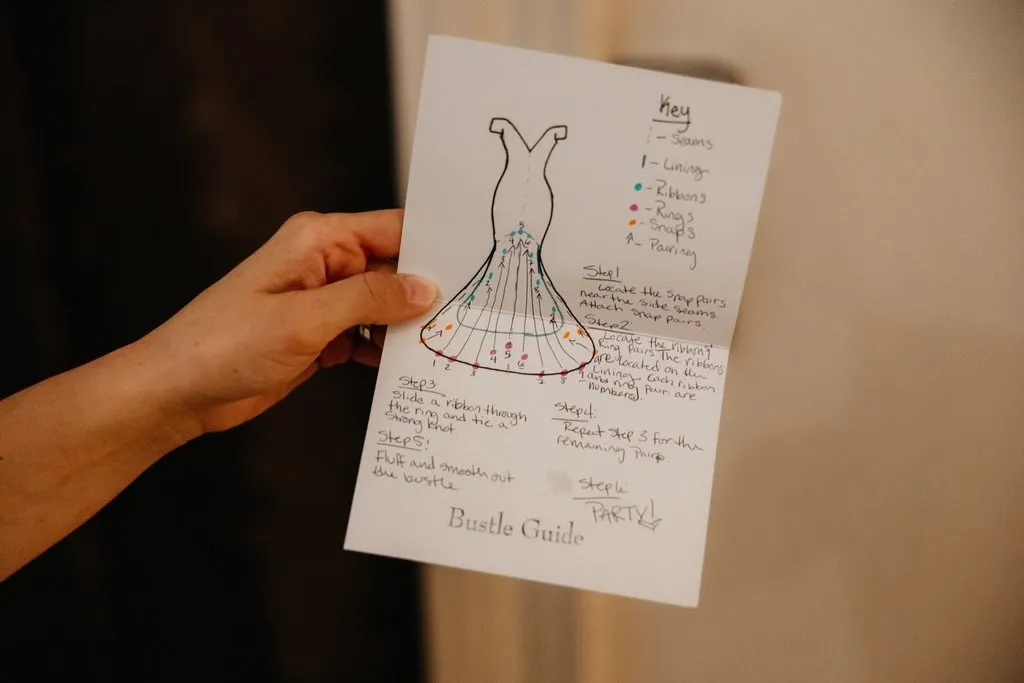 Key
- Seams
- Lining
- Ribbons
- Rings
- Snaps
- Pairing
5
4 6
3 7
2 8
Step 1
Locate the snap pairs
near the side seams.
Attach snap pairs.
Step 2:
Locate the ribbon/
ring pairs. The ribbons
are located on the
lining. Each ribbon
and ring pair are
numbered.
1 2 3 4 5 6 7 8 9
Step 3
Slide a ribbon through
the ring and tie a
strong knot
Step 4:
Repeat step 3 for the
remaining pairs.
Step 5:
Fluff and smooth out
the bustle
Step 6
PARTY!
Bustle Guide